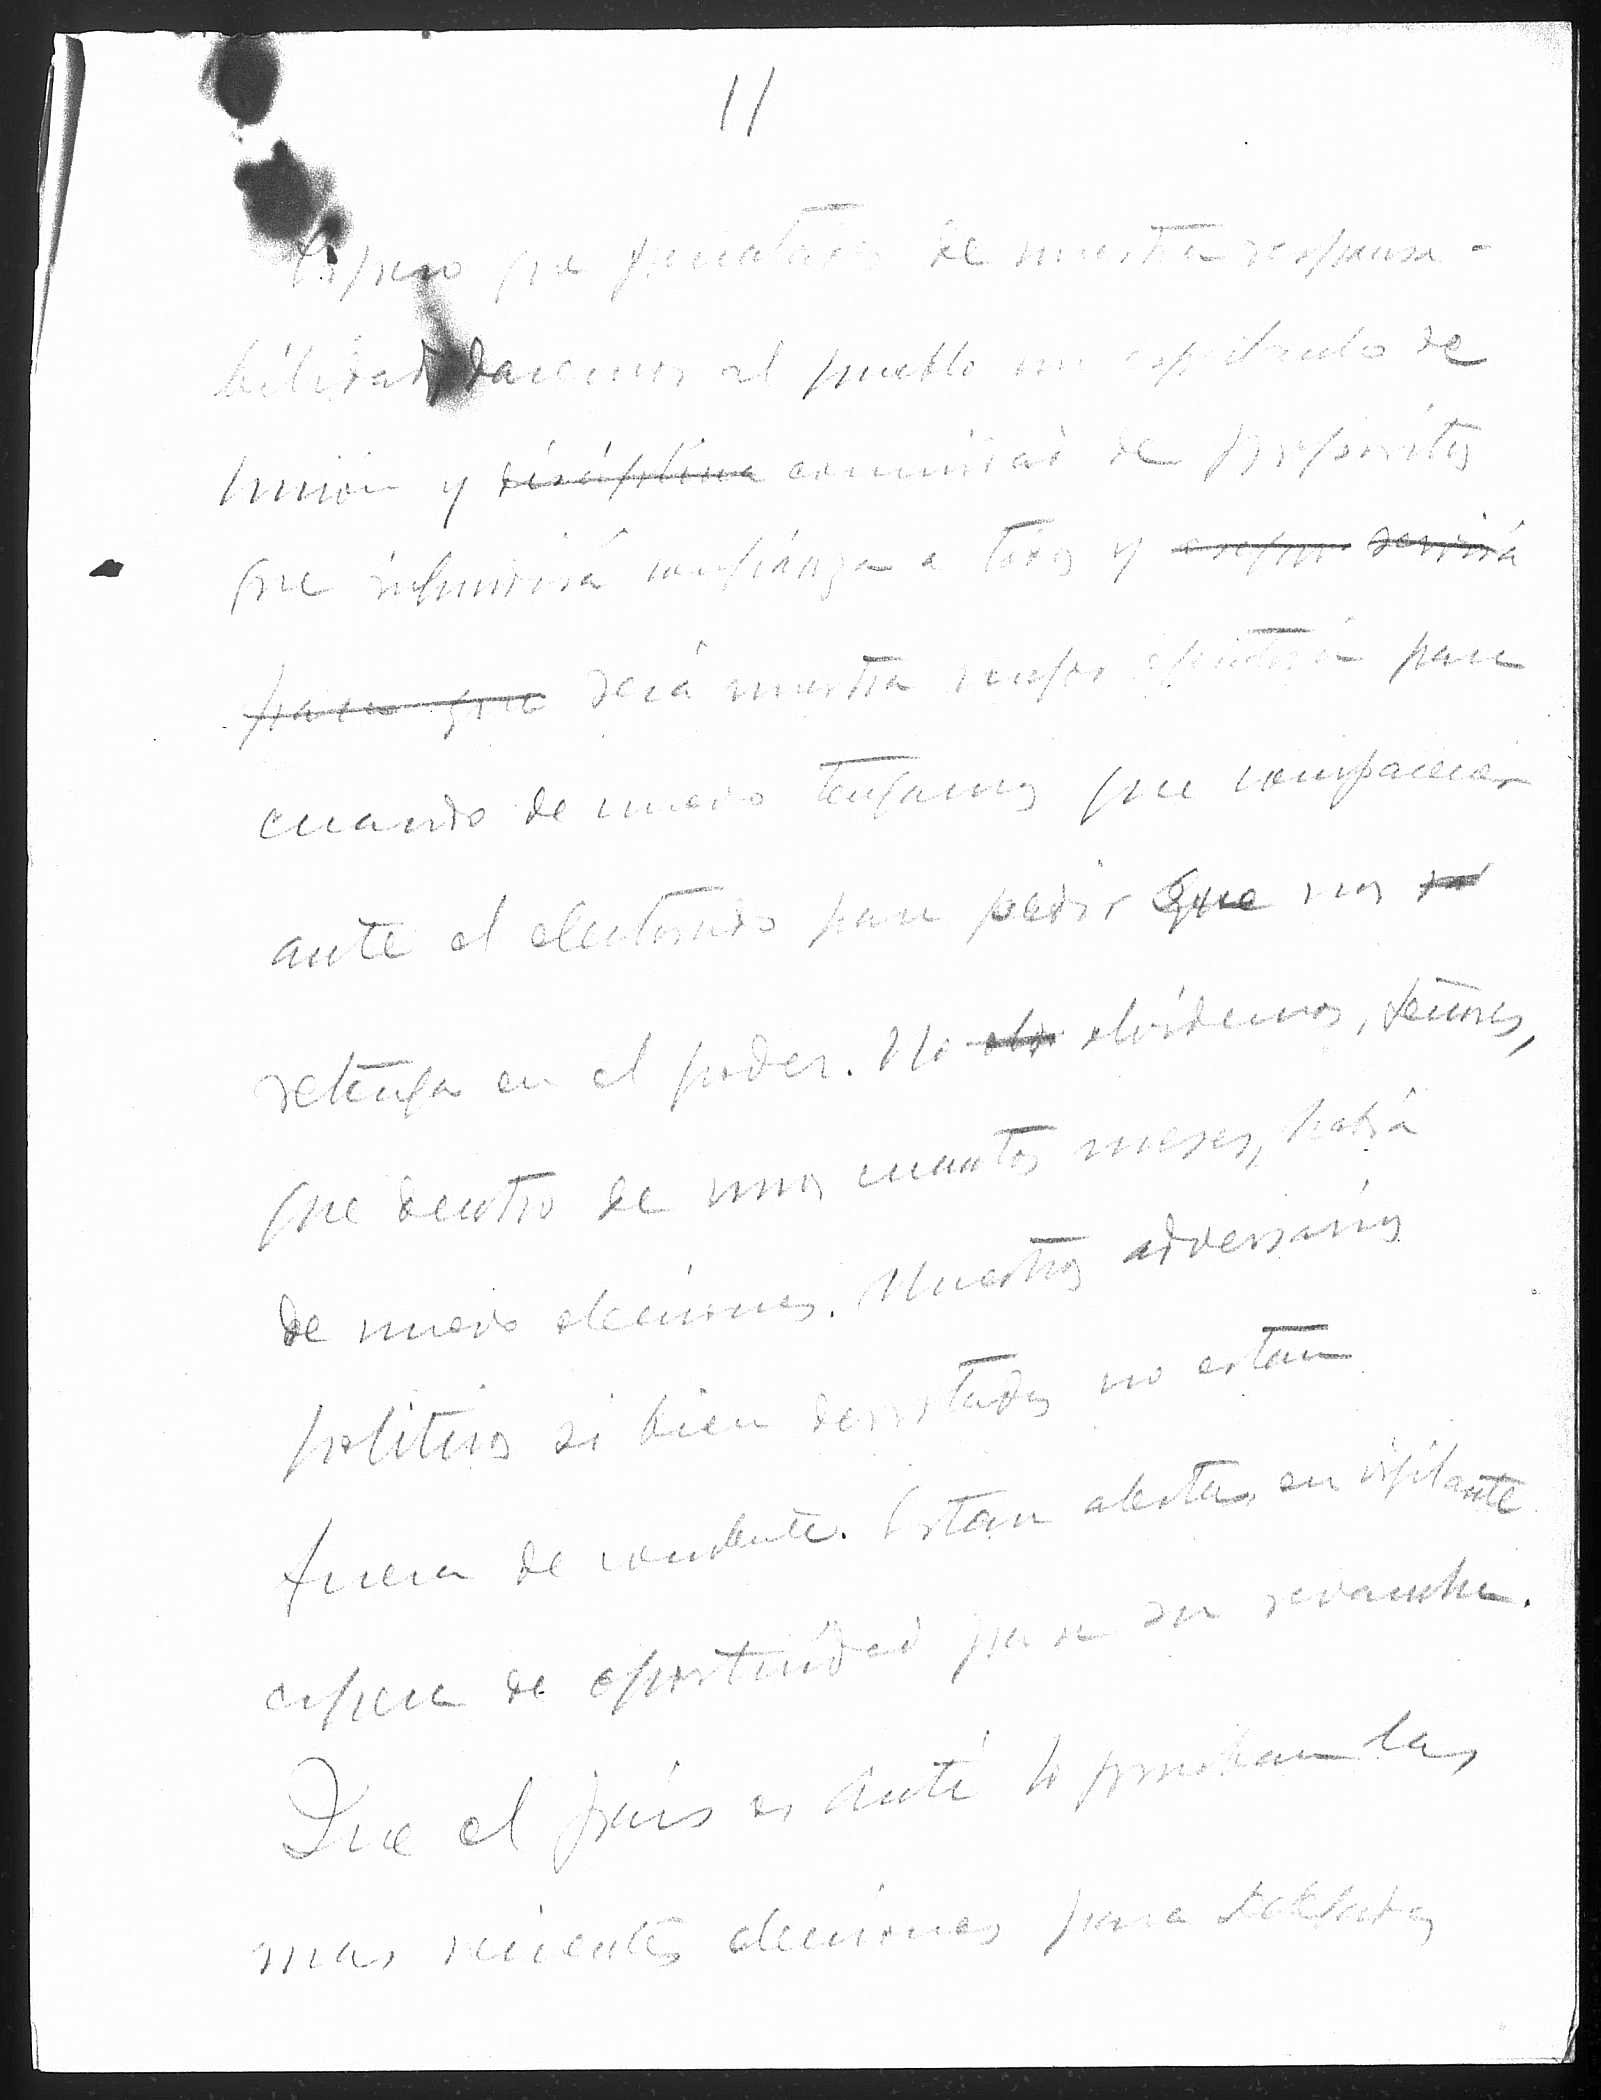 11
Espero que penetrados de nuestra responsa-
bilidad, daremos al pueblo un espectaculo de
unión y disciplina comunidad de propósitos
que infundirá confianza a todos y asegur servirá
para que será nuestra mejor para
cuando de nuevo tengamos que comparecer
ante el electorado para pedir que nos re
retenga en el poder. No olv olvidemos, señores,
que dentro de unos cuantos meses, habrá
de nuevo elecciones. Nuestros adversarios
politicos si bien derrotados no estan
fuera de combate. Estan alertas, en vigilante
espera de oportunidad para su revancha.
Que el país es anti lo prueban las
mas recientes elecciones para Delegados